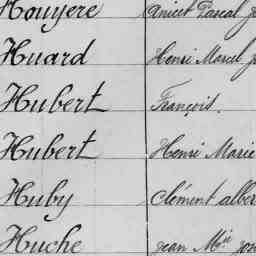 Houyere Anicet Pascal
Huard Henri Marcel
Hubert François.
Hubert Henri Marie
Huby Clément alber
Huche Jean M^ie